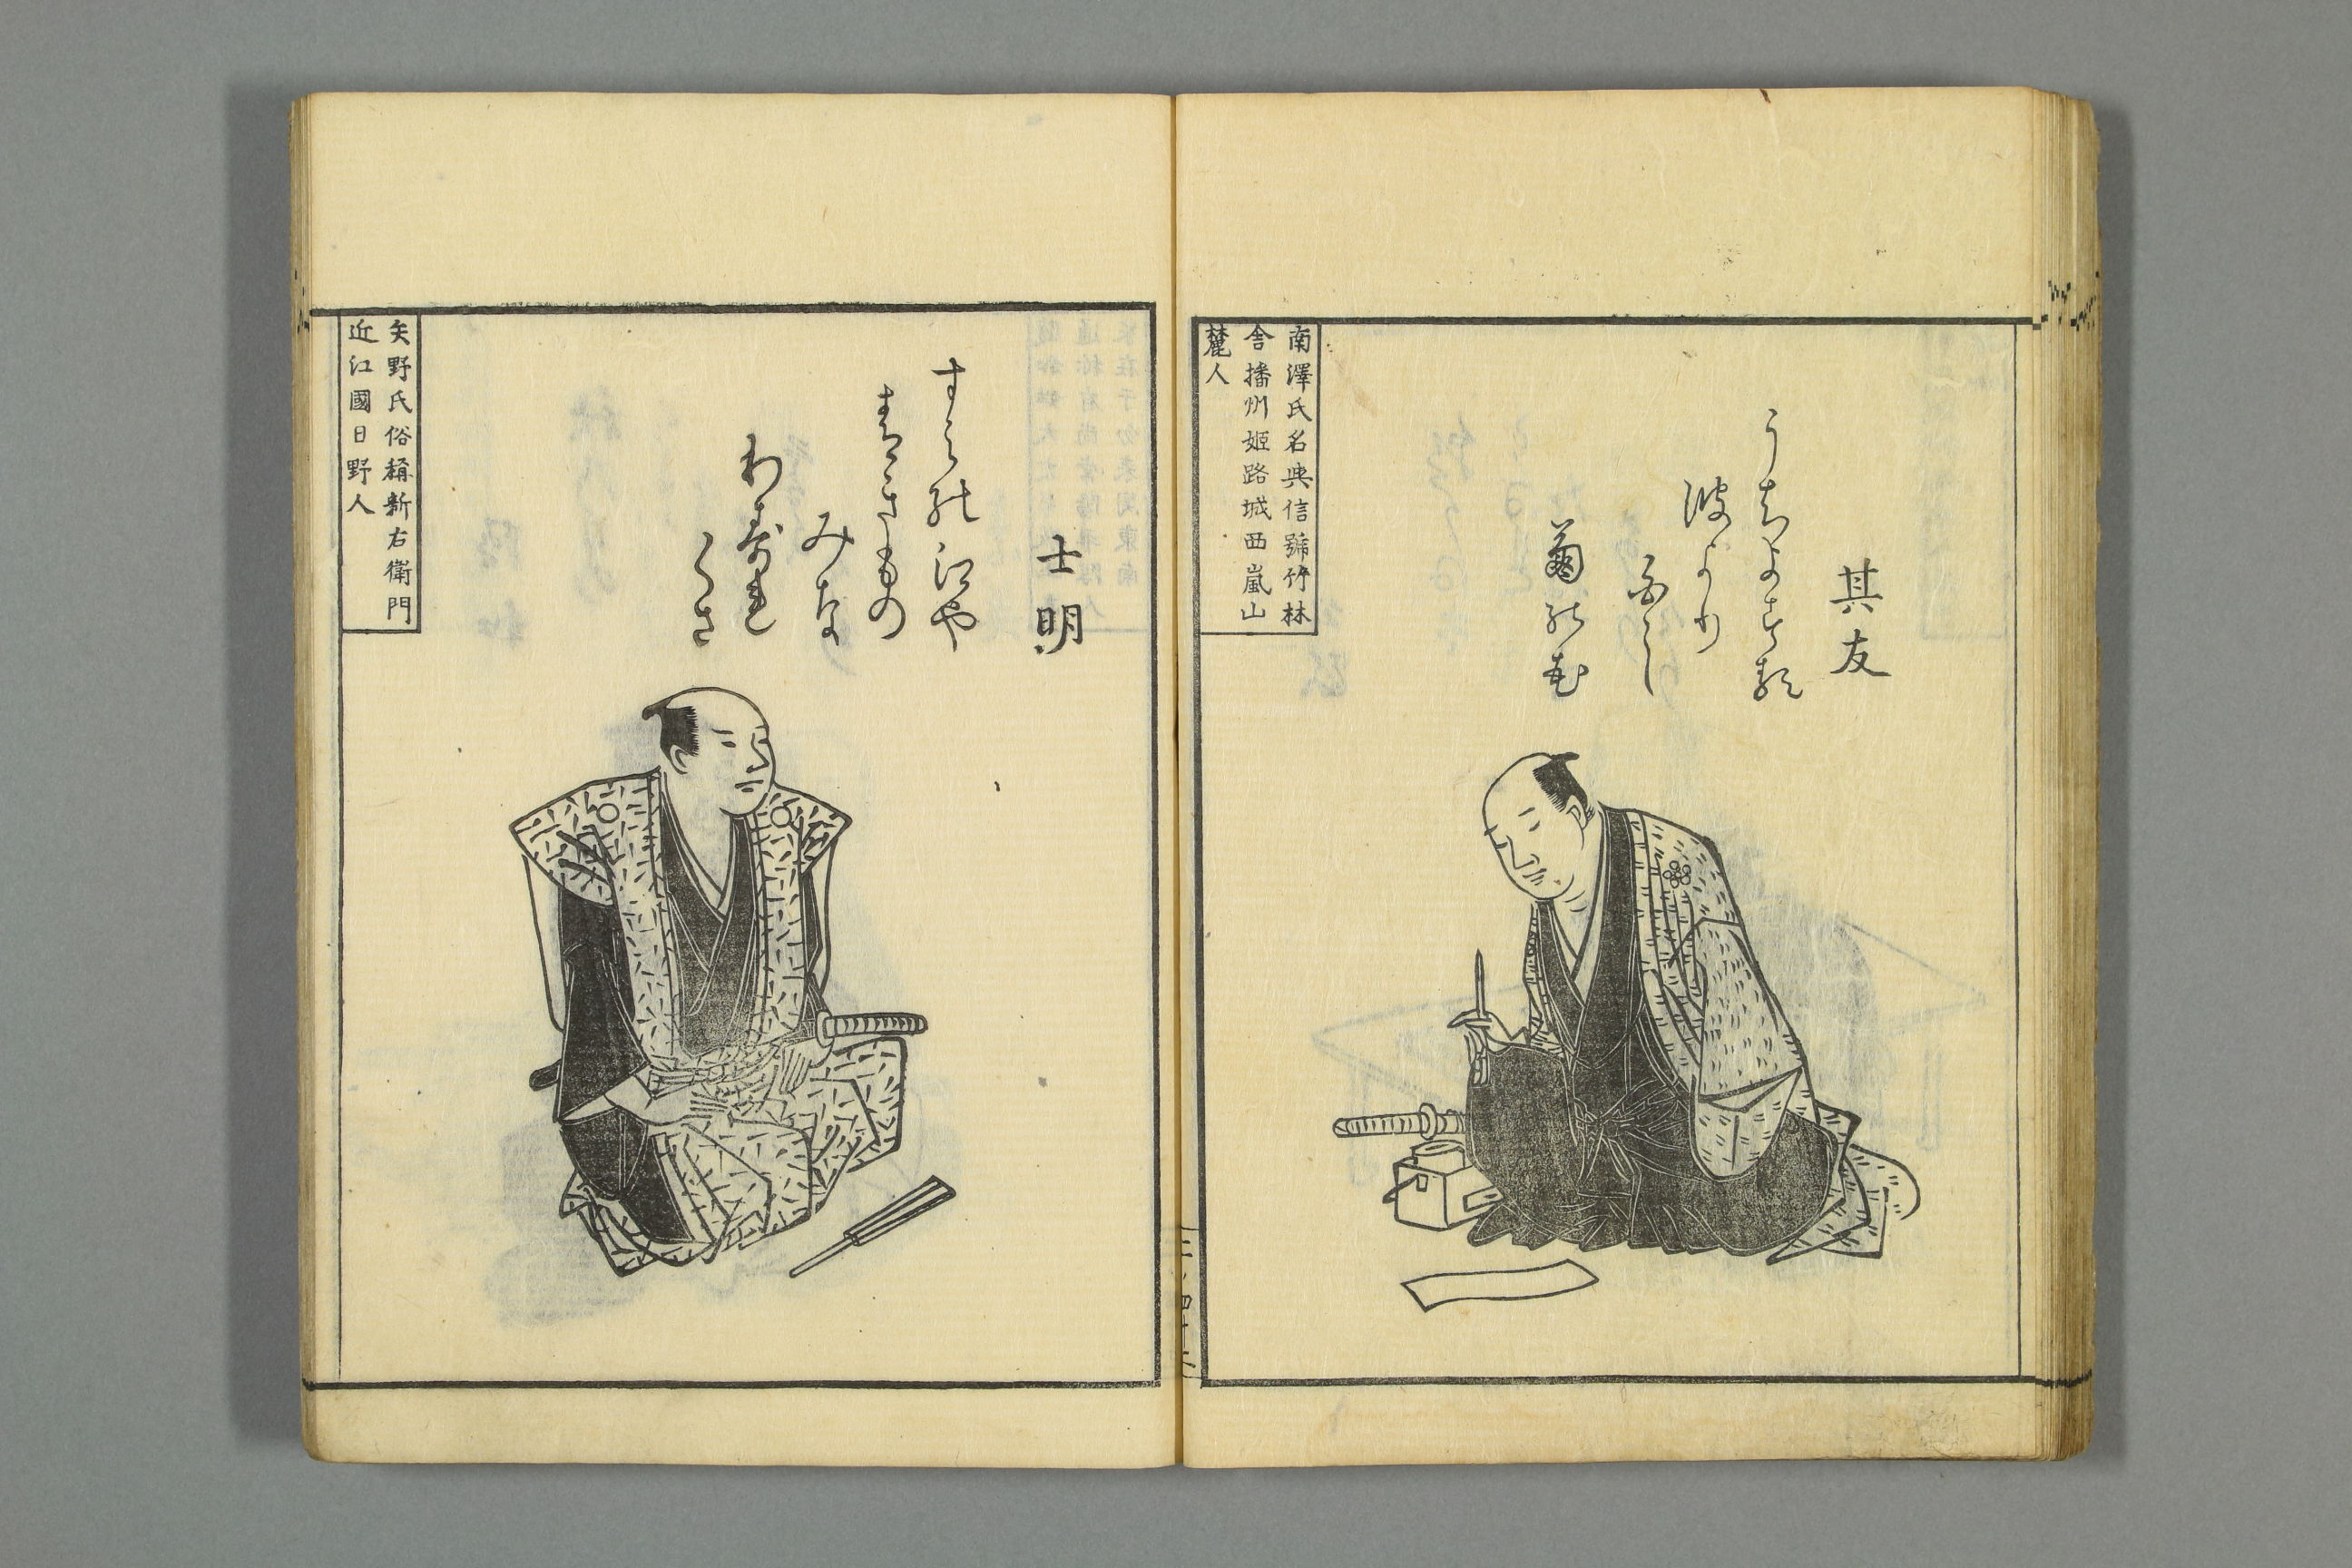 其友
うちよする
波より
白し
菊の花
南澤氏名典信號竹林
舎播州姫路城西嵐山
麓人
士明
すみの江や
きもの
みな
わすれ
くさ
矢野氏俗稱新右衛門
近江國日野人